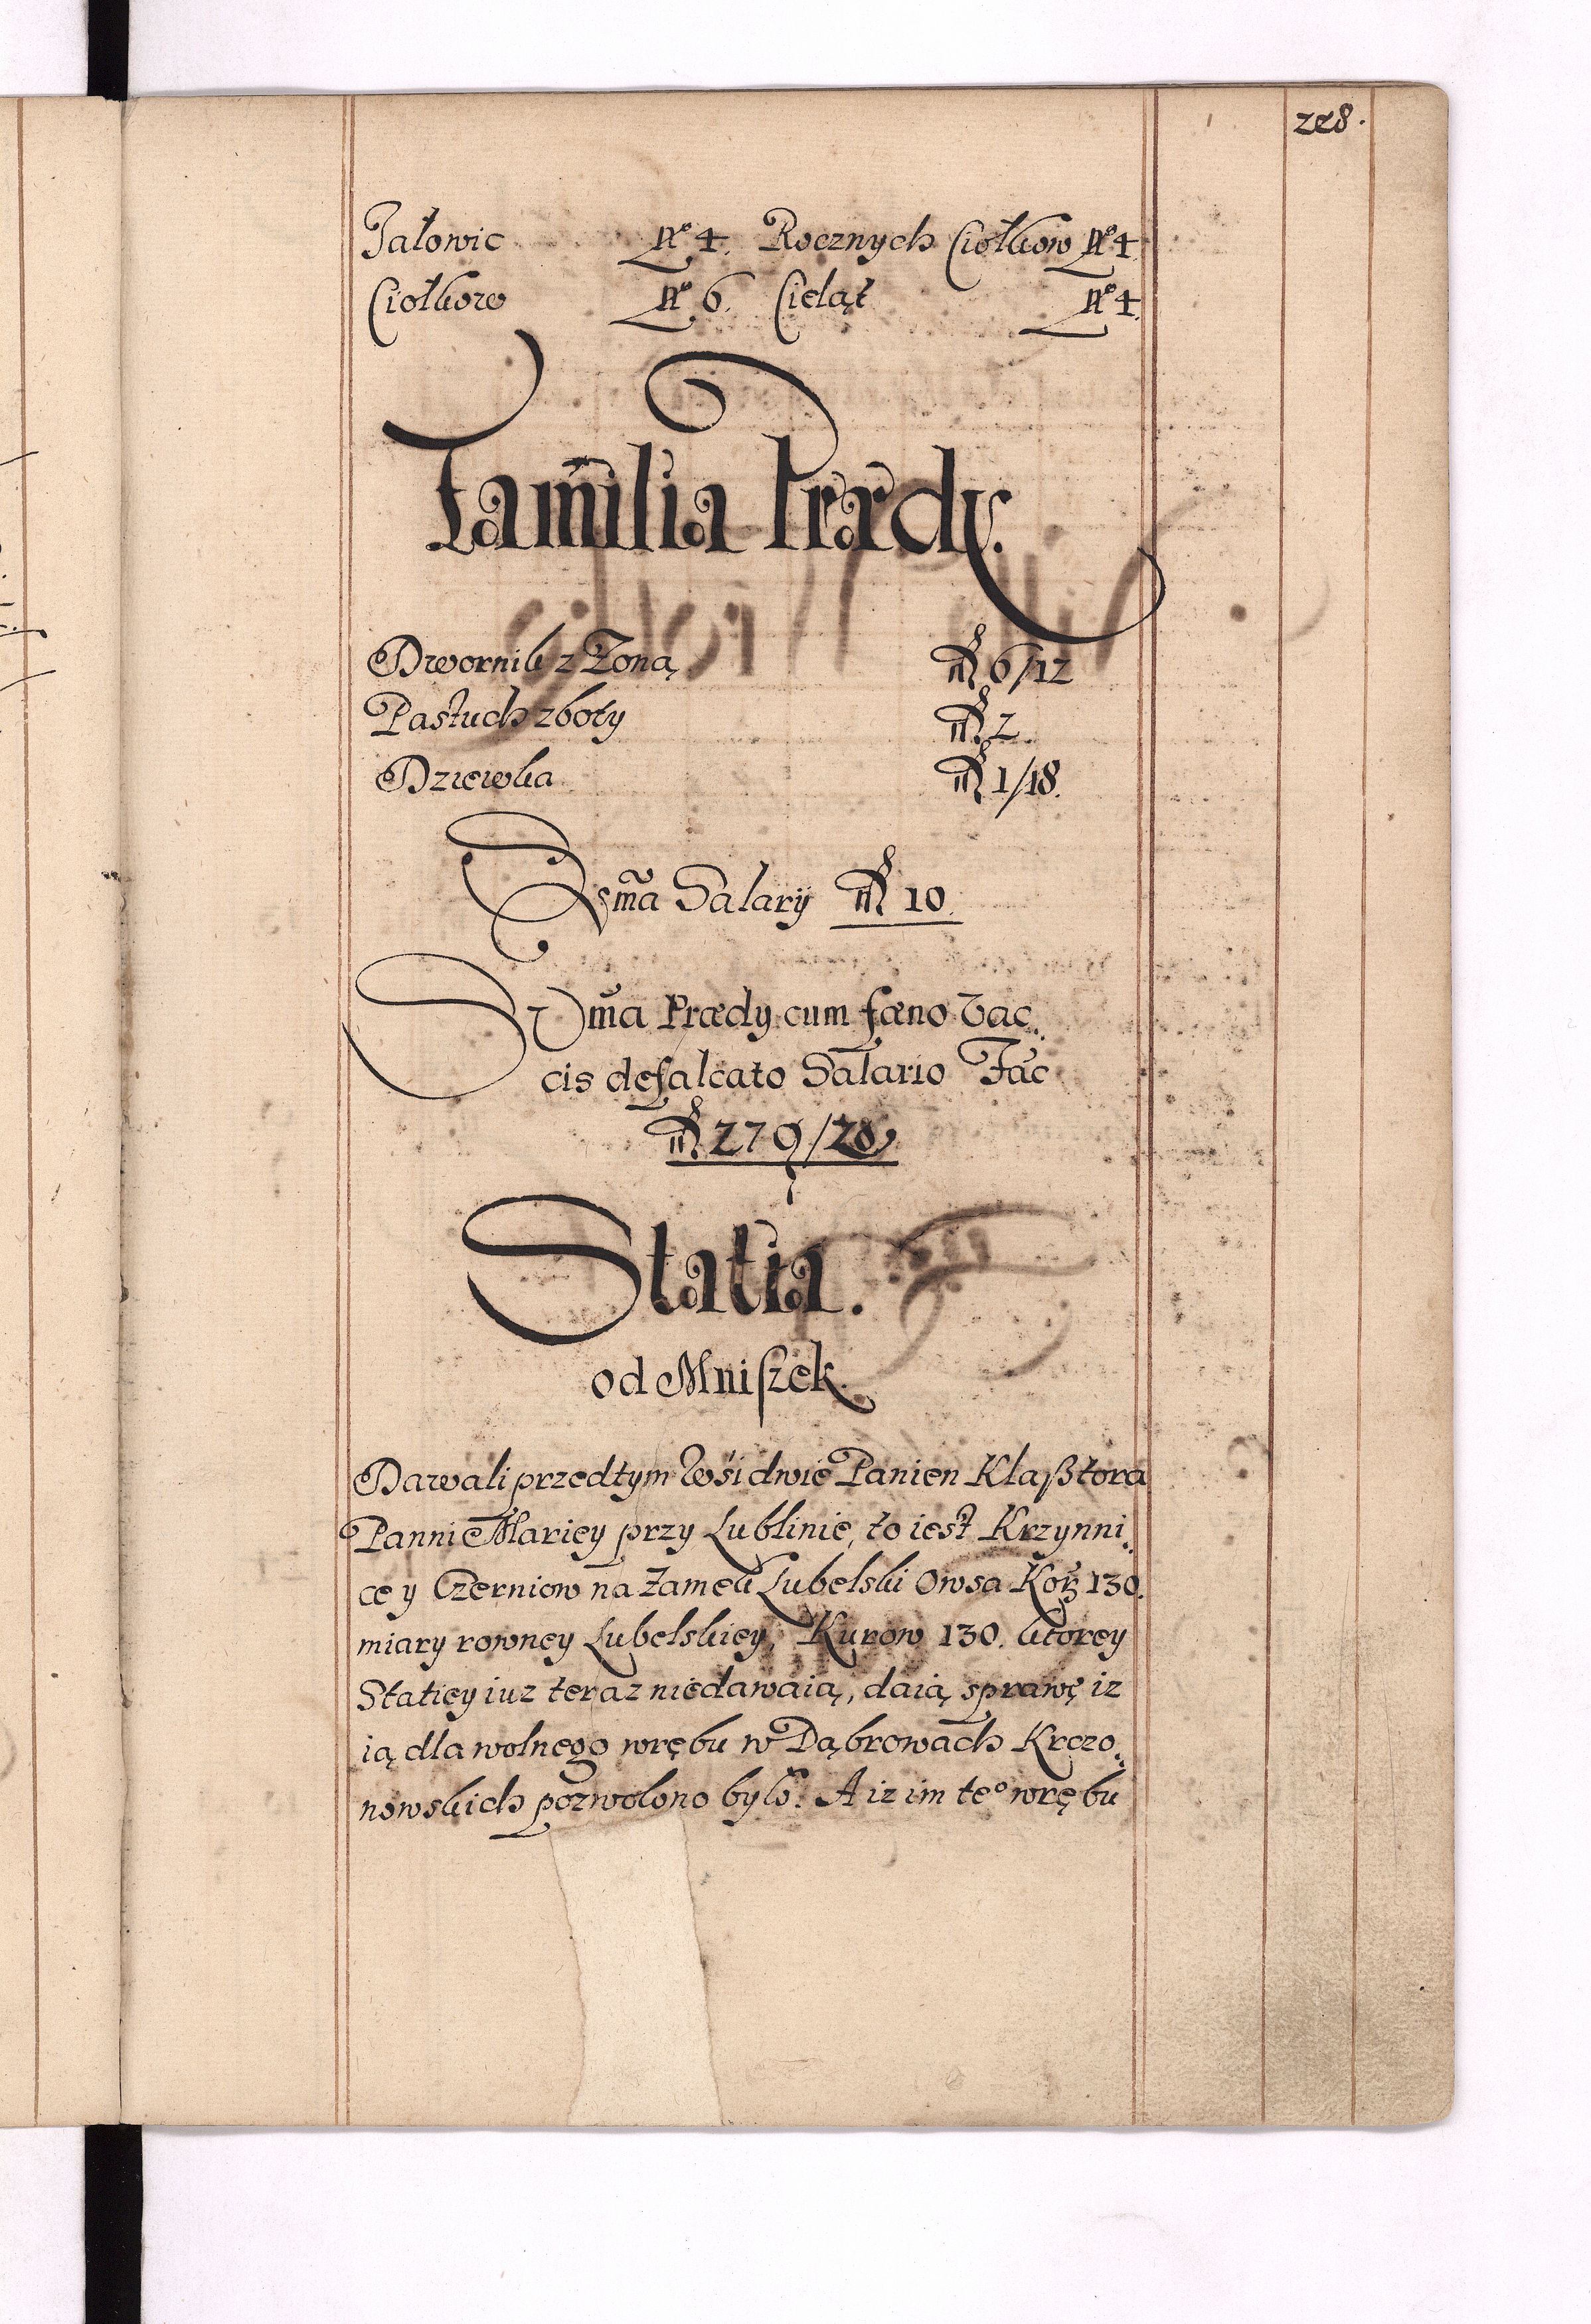 228.
Jałowic No 4. Rocznych Ciołkow No 4.
Ciołkow No 6. Cieląt No 4.
Familia Prædy.
Dwornik z Zoną fl 6/12
Pastuch zboty fl 2
Dziewka fl 1/18.
Sm̃a Salarij fl 10.
Sum̃a Prædy cum fæno Vac
cis defalcato Salario Fac
fl 279/28
Statia.
od Mniſzek.
Dawali przedtym Wśi dwie Panien Klaßtora
Pannie Mariey przy Lublinie, to iest Krzynni
ce y Czerniow na Zamek Lubelski Owsa Korz 130.
miary rowney Lubelskiey, Kurow 130. ktorey
Statiey iuz teraz niedawaią, daią sprawę iz
ią dla wolnego wrębu w Dąbrowach Krczo
nowskich pozwolono było. A iz im teº wrębu